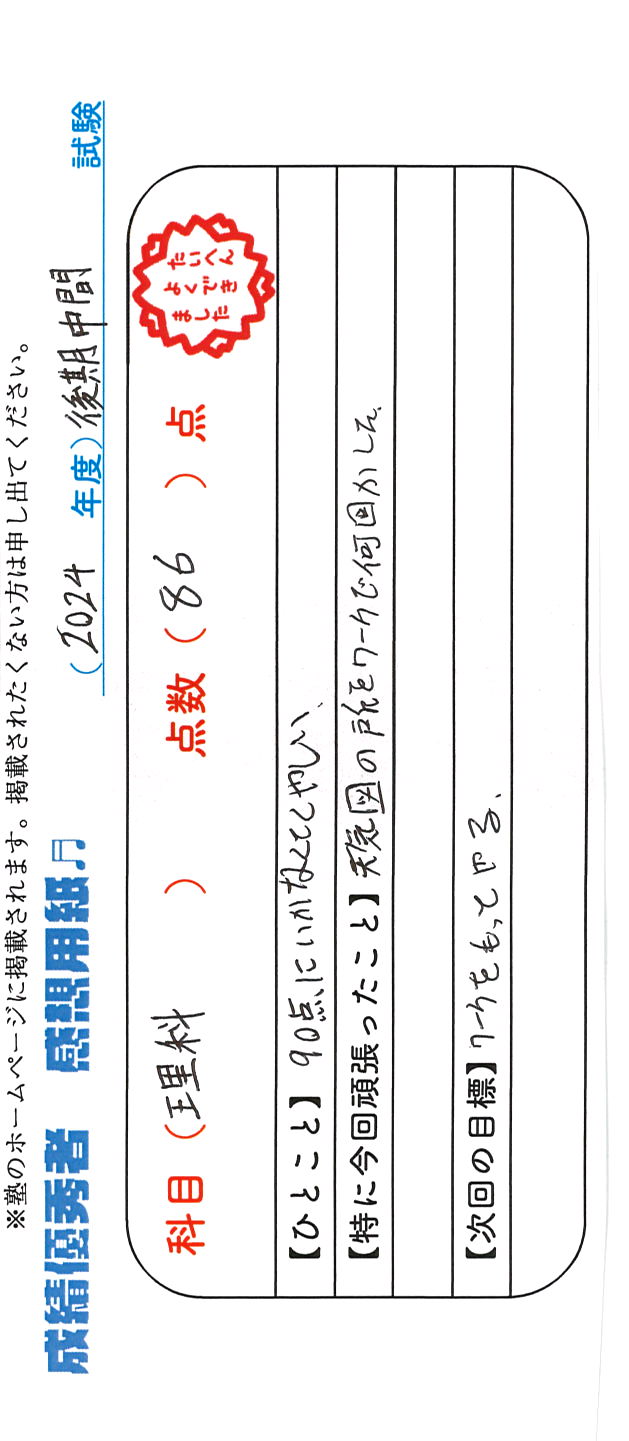 ※塾のホームページに掲載されます。掲載されたくない方は申し出てください。
成績優秀者 感想用紙♫
(2024 年度)後期中間 試験
科目(理科) 点数(86)点
たいへん
よくでき
ました
【ひとこと】90点にいかなくてくやしい、
【特に今回頑張ったこと】天気図の所をワークで何回かした、
【次回の目標】ワークをもってやる、